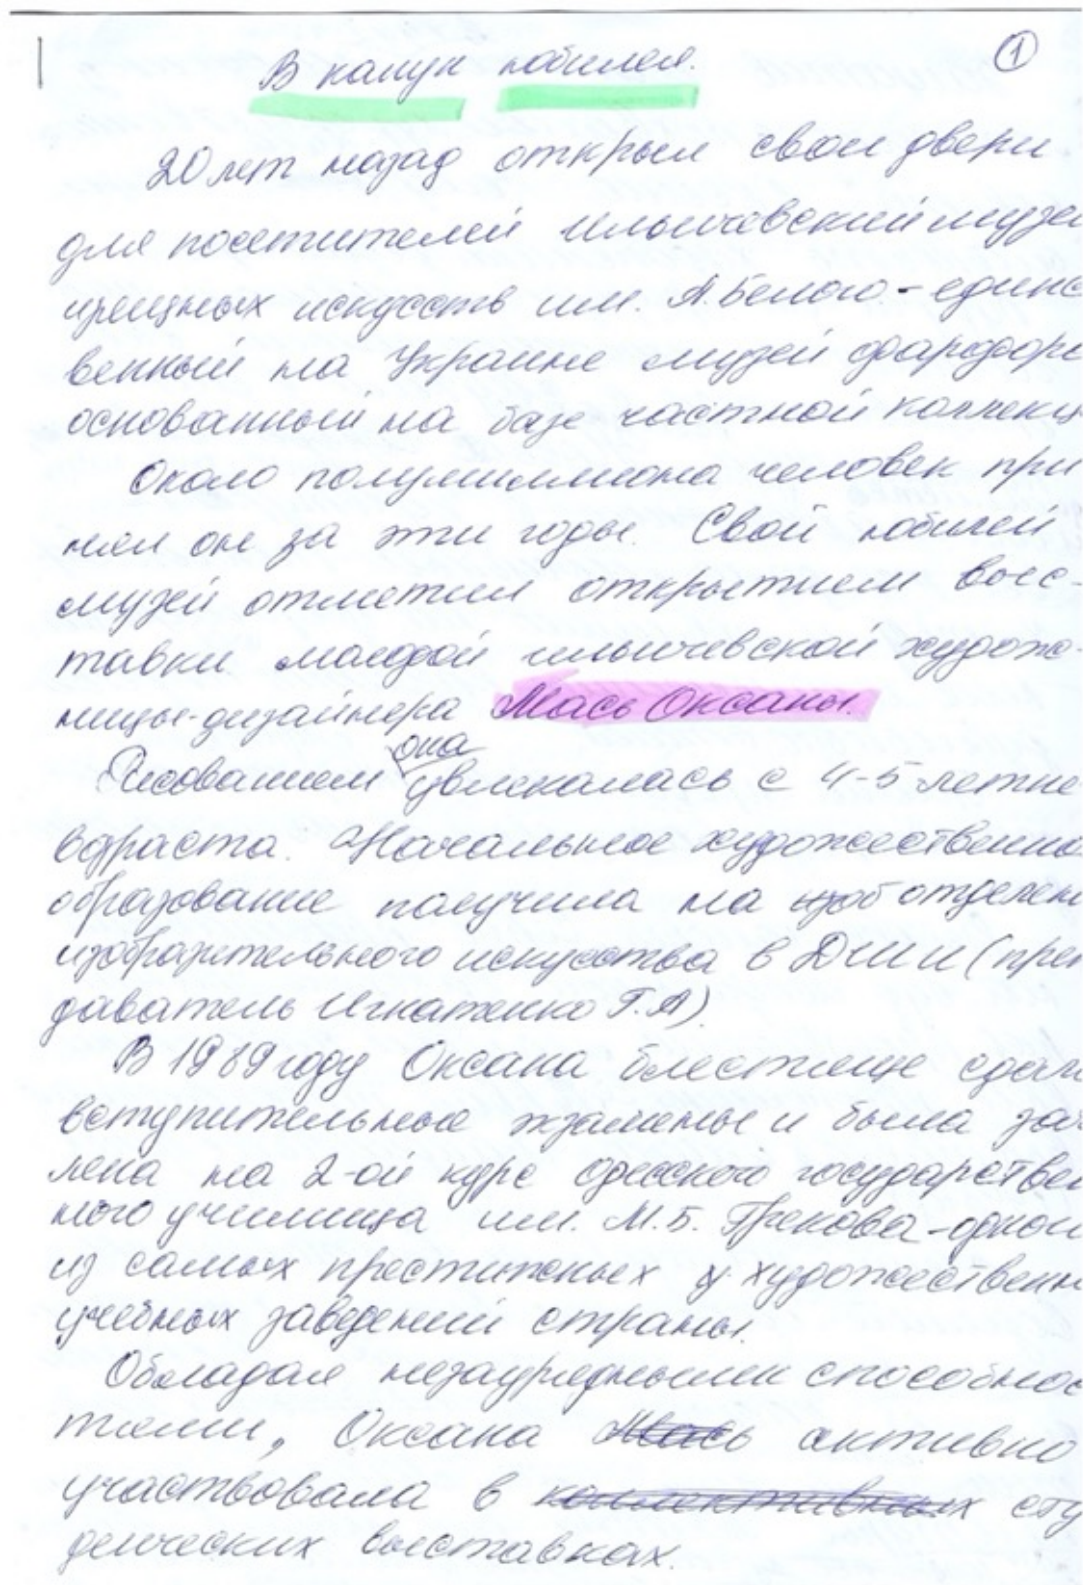 1
В канун юбилея.
20 лет назад открыл свои двери
для посетителей Ильичевский музе
изящных искусств им. А. Белого - единс
венный на Украине музей фарфора
основанный на базе частной коллекц
Около полумиллиона человек при
нял он за эти годы. Свой юбилей
музей отметил открытием выс-
тавки молодой ильичевской худож-
ницы-дизайнера Мась Оксаны.
она
Рисованием увлекалась с 4-5 летне
возраста. Начальное художественно
образование получила на отделен
изобразительного искусства в ДШИ (преп
даватель Игнатенко Г.А)
В 1989 году Оксана блестяще сдала
вступительные экзамены и была зач
лена на 2-ой курс Одесского государствен
ного училища им. М.Б. Грекова - одного
из самых престижных художественн
учебных заведений страны.
Обладая незаурядными способнос
тями, Оксана Мась активно
участвовала в коллективных сту
денческих выставках.